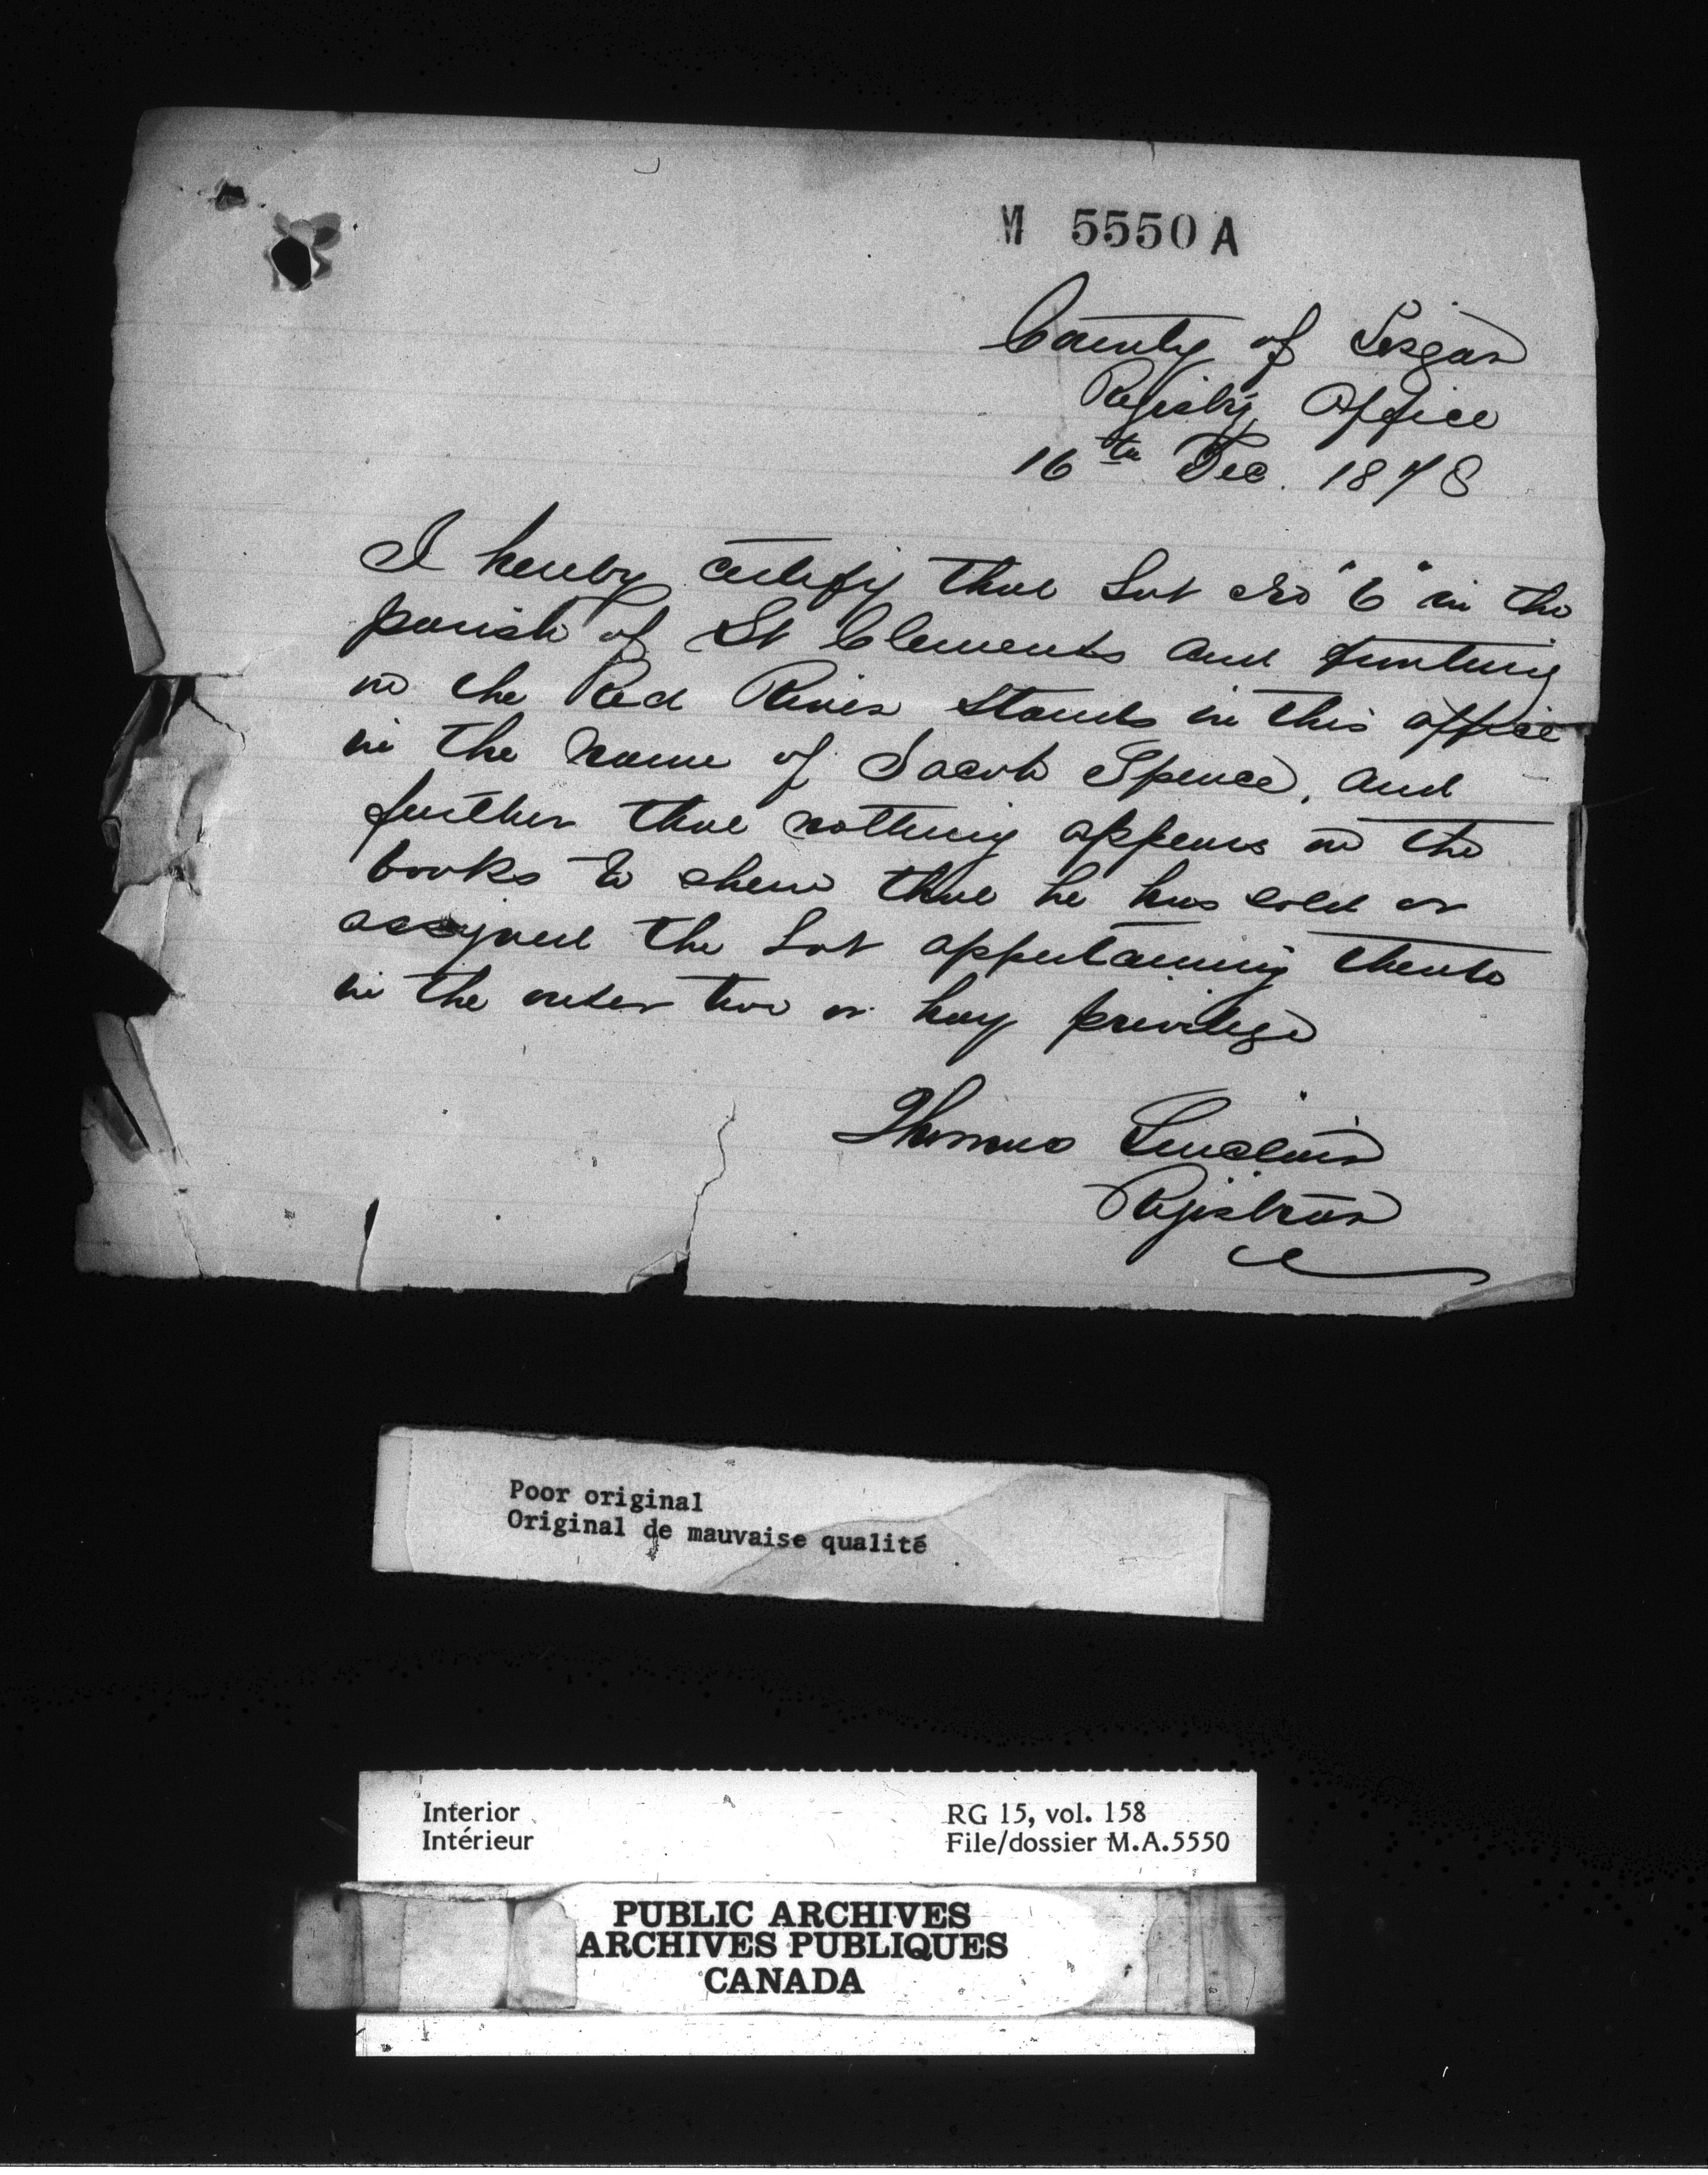 M 5550 A
County of Lisgar
Registry Office
16th Dec. 1878
I hereby certify that Lot No "6" in the
parish of St Clements and fronting
on the Red River stands in this office
in the name of Jacob Spence, and
further that nothing appears on the
books to shew that he has sold or
assigned the Lot appertaining thereto
in the outer two or hay privilege
Thomas Sinclair
Registrar
Poor original
Original de mauvaise qualité
Interior
Intérieur
RG 15, vol. 158
File/dossier M.A.5550
PUBLIC ARCHIVES
ARCHIVES PUBLIQUES
CANADA